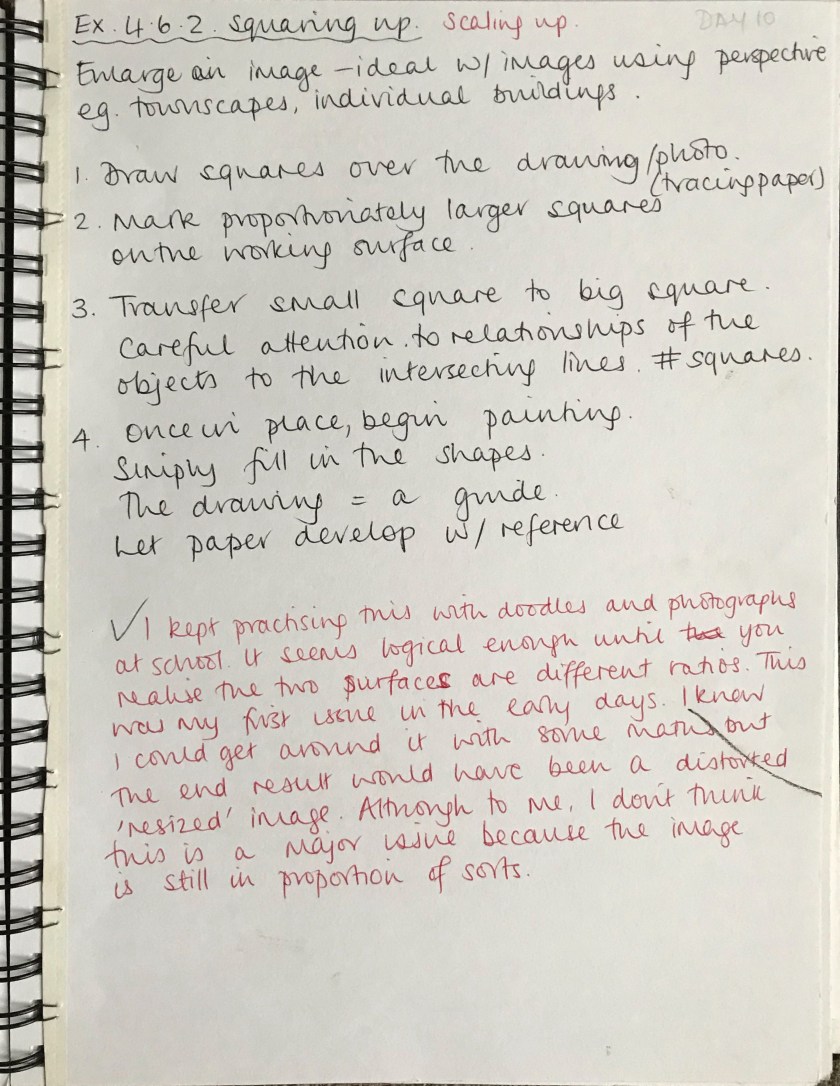 Ex. 4.6.2. Squaring up. Scaling up. DAY 10
Enlarge an image – ideal w/ images using perspective
eg. townscapes, individual buildings.
1. Draw squares over the drawing/photo.
(tracing paper)
2. Mark proportionately larger squares
on the working surface.
3. Transfer small square to big square.
Careful attention to relationships of the
objects to the intersecting lines. # squares.
4. Once in place, begin painting.
Simply fill in the shapes.
The drawing = a guide.
Let paper develop w/ reference
✓ I kept practising this with doodles and photographs
at school. It seems logical enough until you
realise the two surfaces are different ratios. This
was my first issue in the early days. I knew
I could get around it with some maths but
the end result would have been a distorted
'resized' image. Although to me, I don't think
this is a major issue because the image
is still in proportion of sorts.